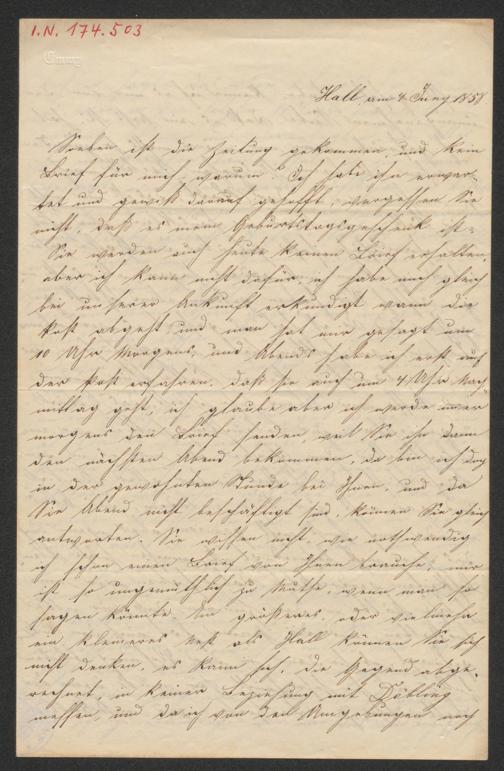 I.N. 174.503
Emmy
Hall am 4 Juny 1858
Soeben ist die Zeitung gekommen, und kein
Brief für mich, warum? Ich hatte ihn erwar-
tet und gewiß darauf gehofft, vergessen Sie
nicht, daß es mein Geburtstagsgeschenk ist.
Sie werden auch heute keinen Brief erhalten,
aber ich kann nicht dafür, ich habe mich gleich
bei unserer Ankunft erkundigt wann die
Post abgeht, und man hat mir gesagt um
10 Uhr Morgens, und Abends habe ich erst auf
der Post erfahren, daß sie auch um 4 Uhr Nach-
mittag geht; ich glaube aber ich werde immer
morgens den Brief senden, weil Sie ihn dann
den nächsten Abend bekommen, da bin ich doch
in der gewohnten Stunde bei Ihnen, und da
Sie Abend nicht beschäftigt sind, können Sie gleich
antworten. Sie wissen nicht, wie nothwendig
ich schon einen Brief von Ihnen brauche, mir
ist so ungemüthlich zu Muthe, wenn man so
sagen könnte. Ein größeres, oder vielmehr
ein kleineres Nest als Hall können Sie sich
nicht denken, es kann sich, die Gegend abge-
rechnet, in keiner Beziehung mit Döbling
messen, und da ich von den Umgebungen noch